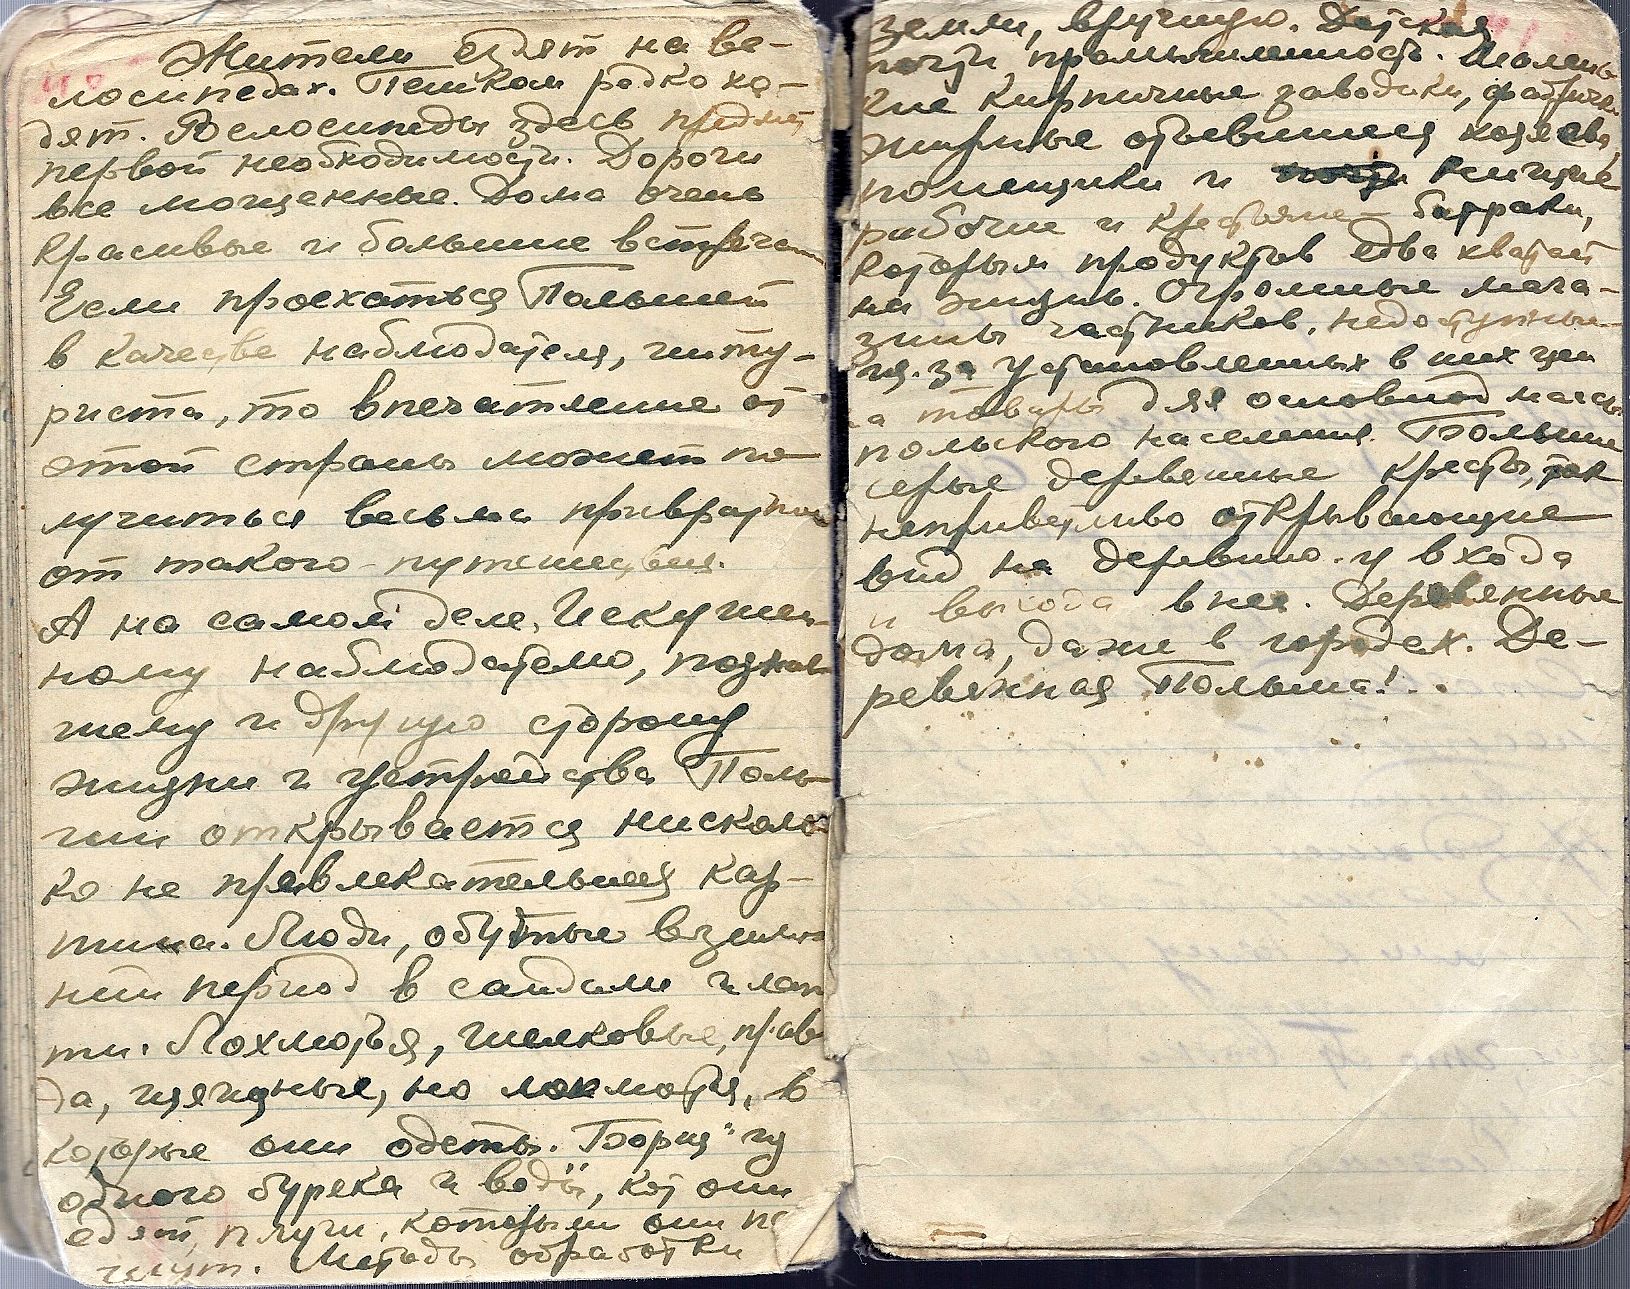 Жители ездят на ве-
лосипедах. Пешком редко хо-
дят. Велосипеды здесь предмет
первой необходимости. Дороги
все мощенные. Дома очень
красивые и большие встреча
Если проехаться Польшей
в качестве наблюдателя, или ту-
риста, то впечатление от
этой страны может по-
лучиться весьма превратное
от такого путешествия.
А на самом деле, Искушен-
ному наблюдателю, познав-
шему и другую сторону
жизни и устройства Поль-
ши открывается нисколь-
ко не привлекательная кар-
тина. Люди, обутые в зим-
ний период в сандали и лап-
ти. Лохмотья, шелковые, прав-
да, изящные, но лохмотья, в
которые они одеты. "Борщ" из
одного бурека и воды, кот они
едят, плуги, которыми они па
шут. Методы обработки
земли, вручную. Детская
почти промышленность. Малень-
кие кирпичные заводики, фабрички
жирные отъевшиеся хозяева,
помещики и нищие
рабочие и крестьяне - батраки,
которым продуктов едва хватает
на жизнь. Огромные мага-
зины частников, недоступные
из-за установленных в них цен
на товары для основной массы
польского населения. Большие
серые деревенные кресты, так
неприветливо открывающие
вид на деревню у входа
и выхода в нее. Деревянные
дома, даже в городах. Де-
ревянная Польша!..